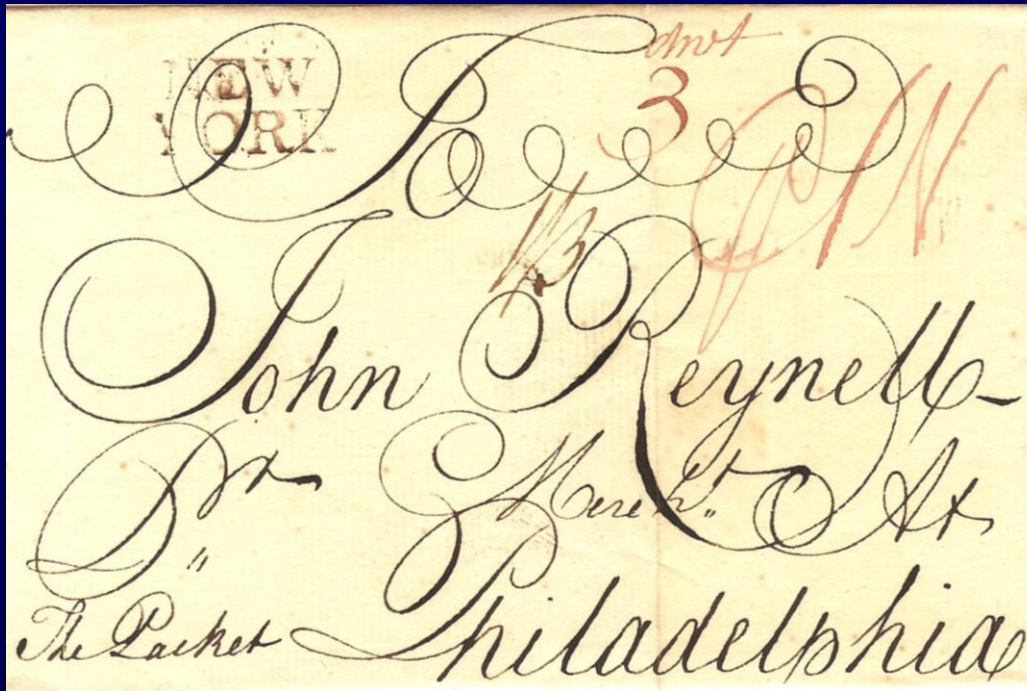 NEW
YORK
To
dwt
3
John Reynell
Pr
Mercht. At
The Packet
Philadelphia